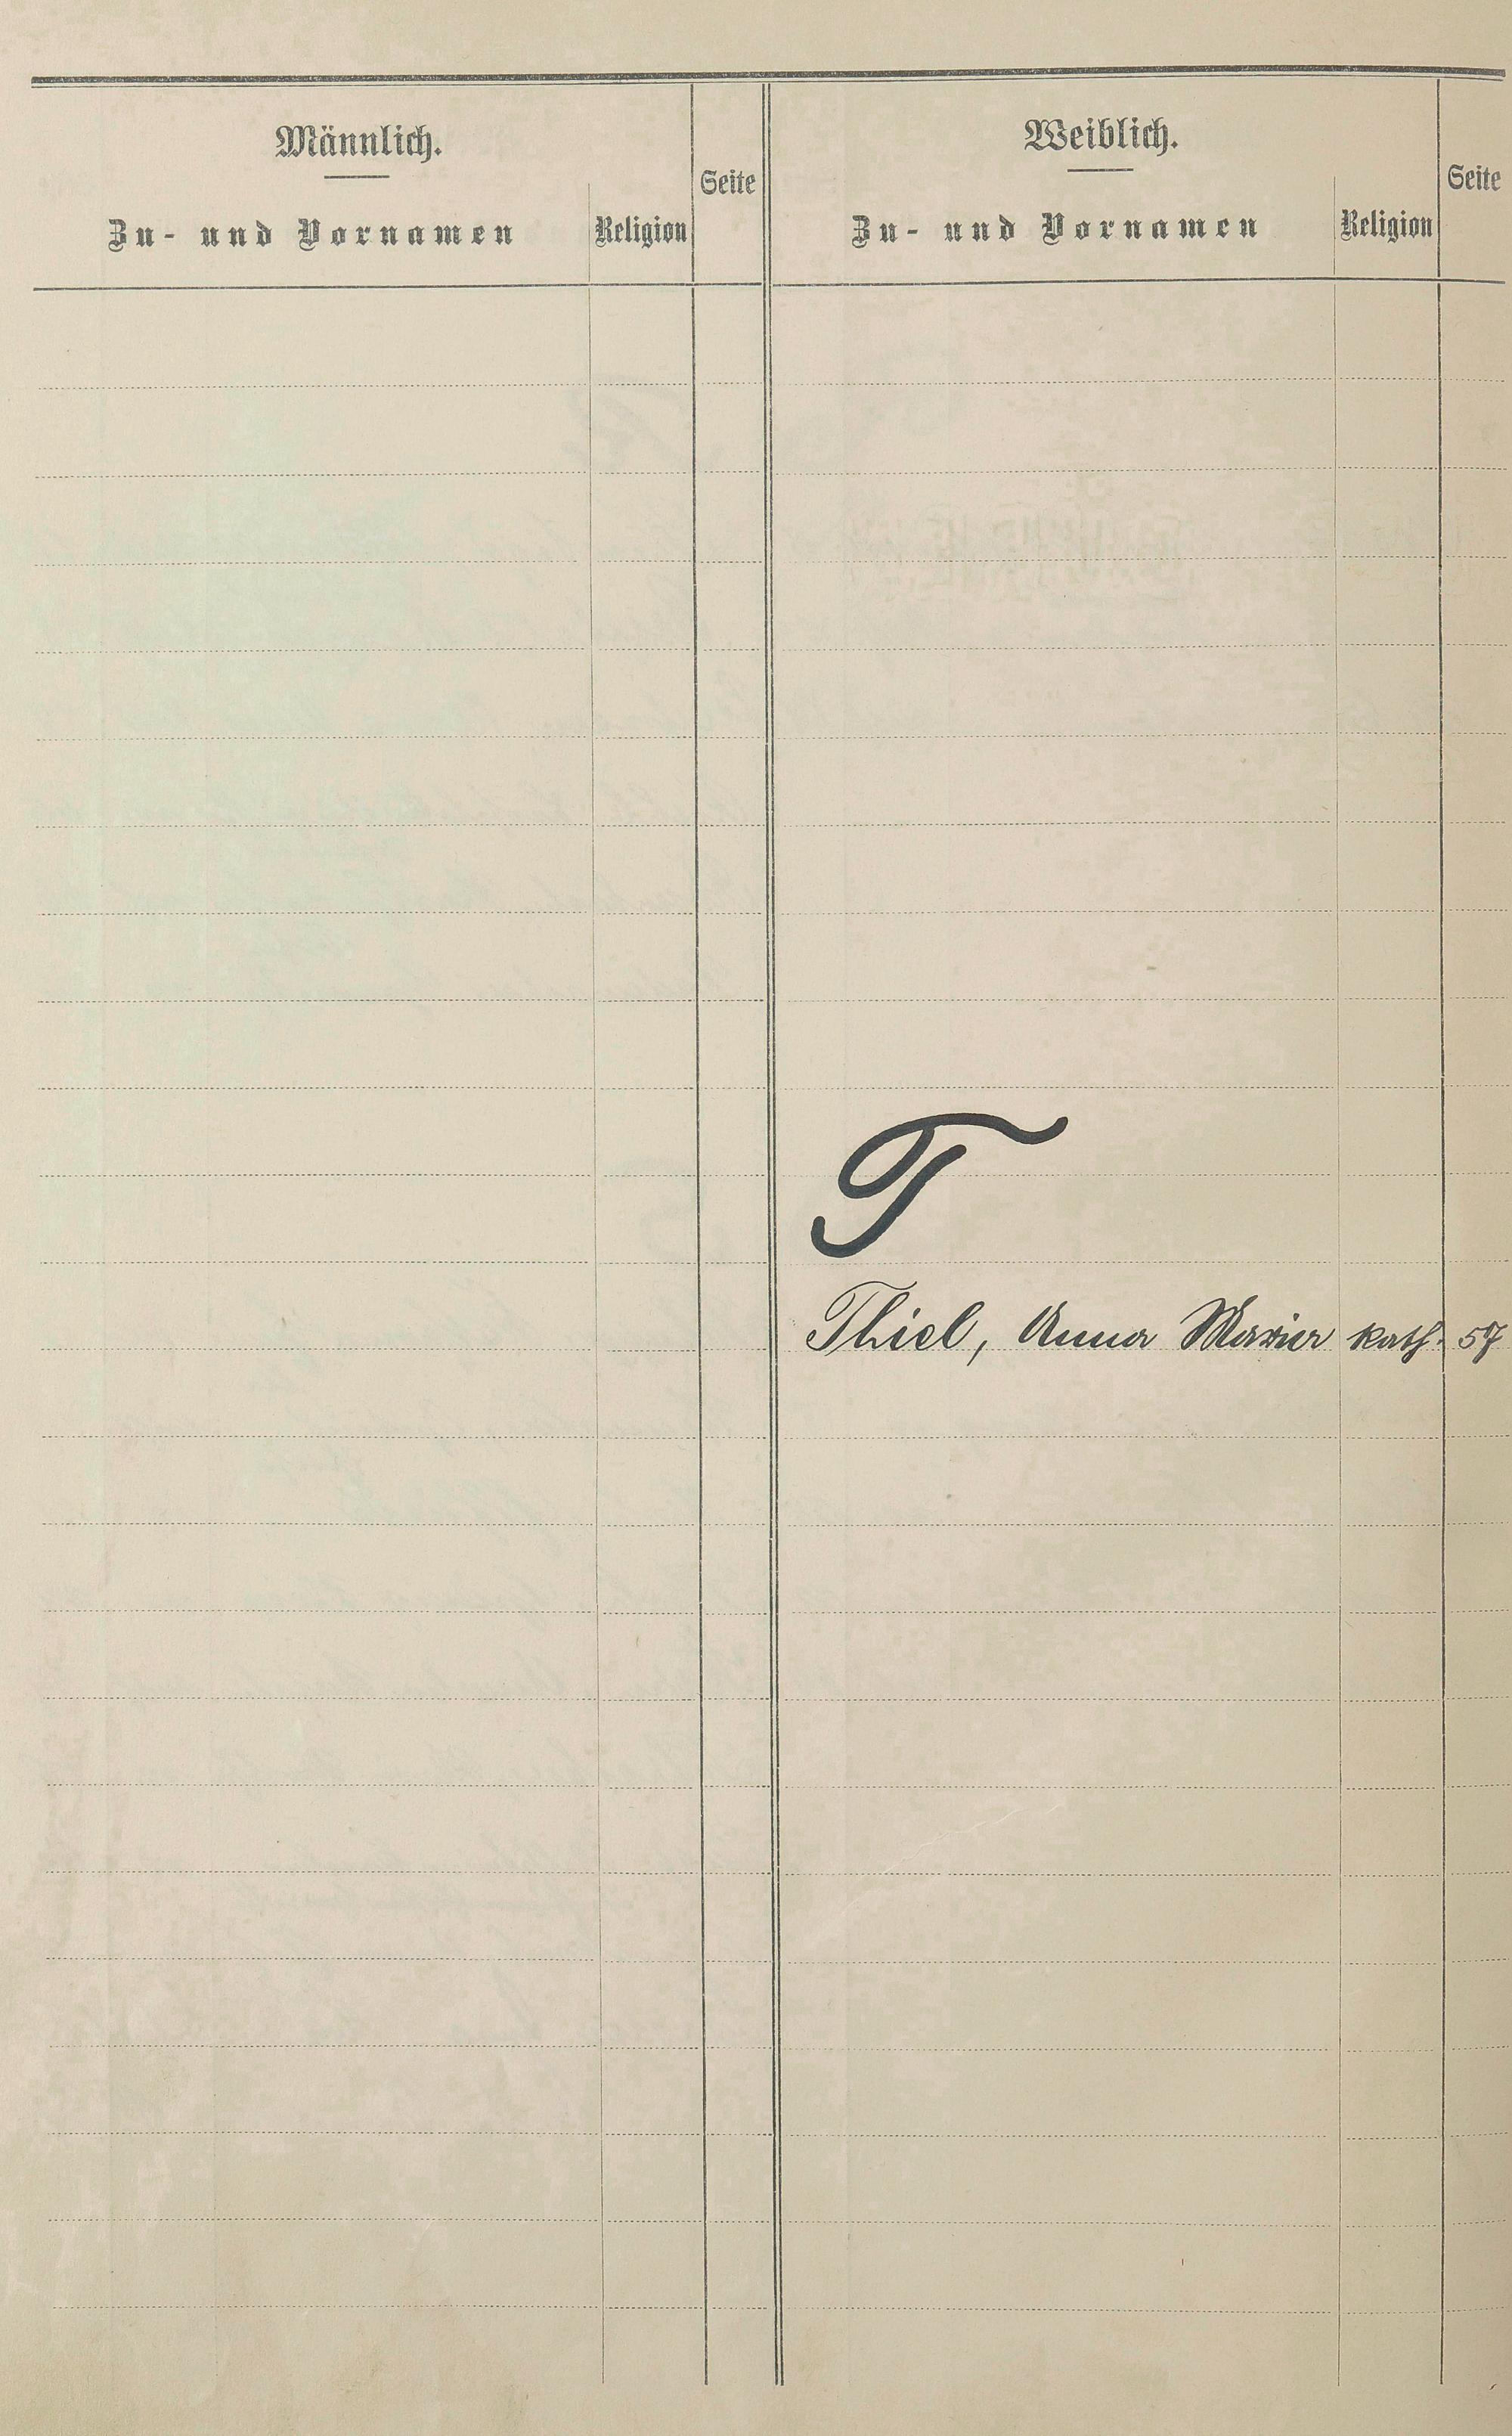 Männlich.
Zu- und Vornamen
Religion
Seite
Weiblich.
Zu- und Vornamen
Religion
Seite
T
Thiel, Anna Maria kath. 57